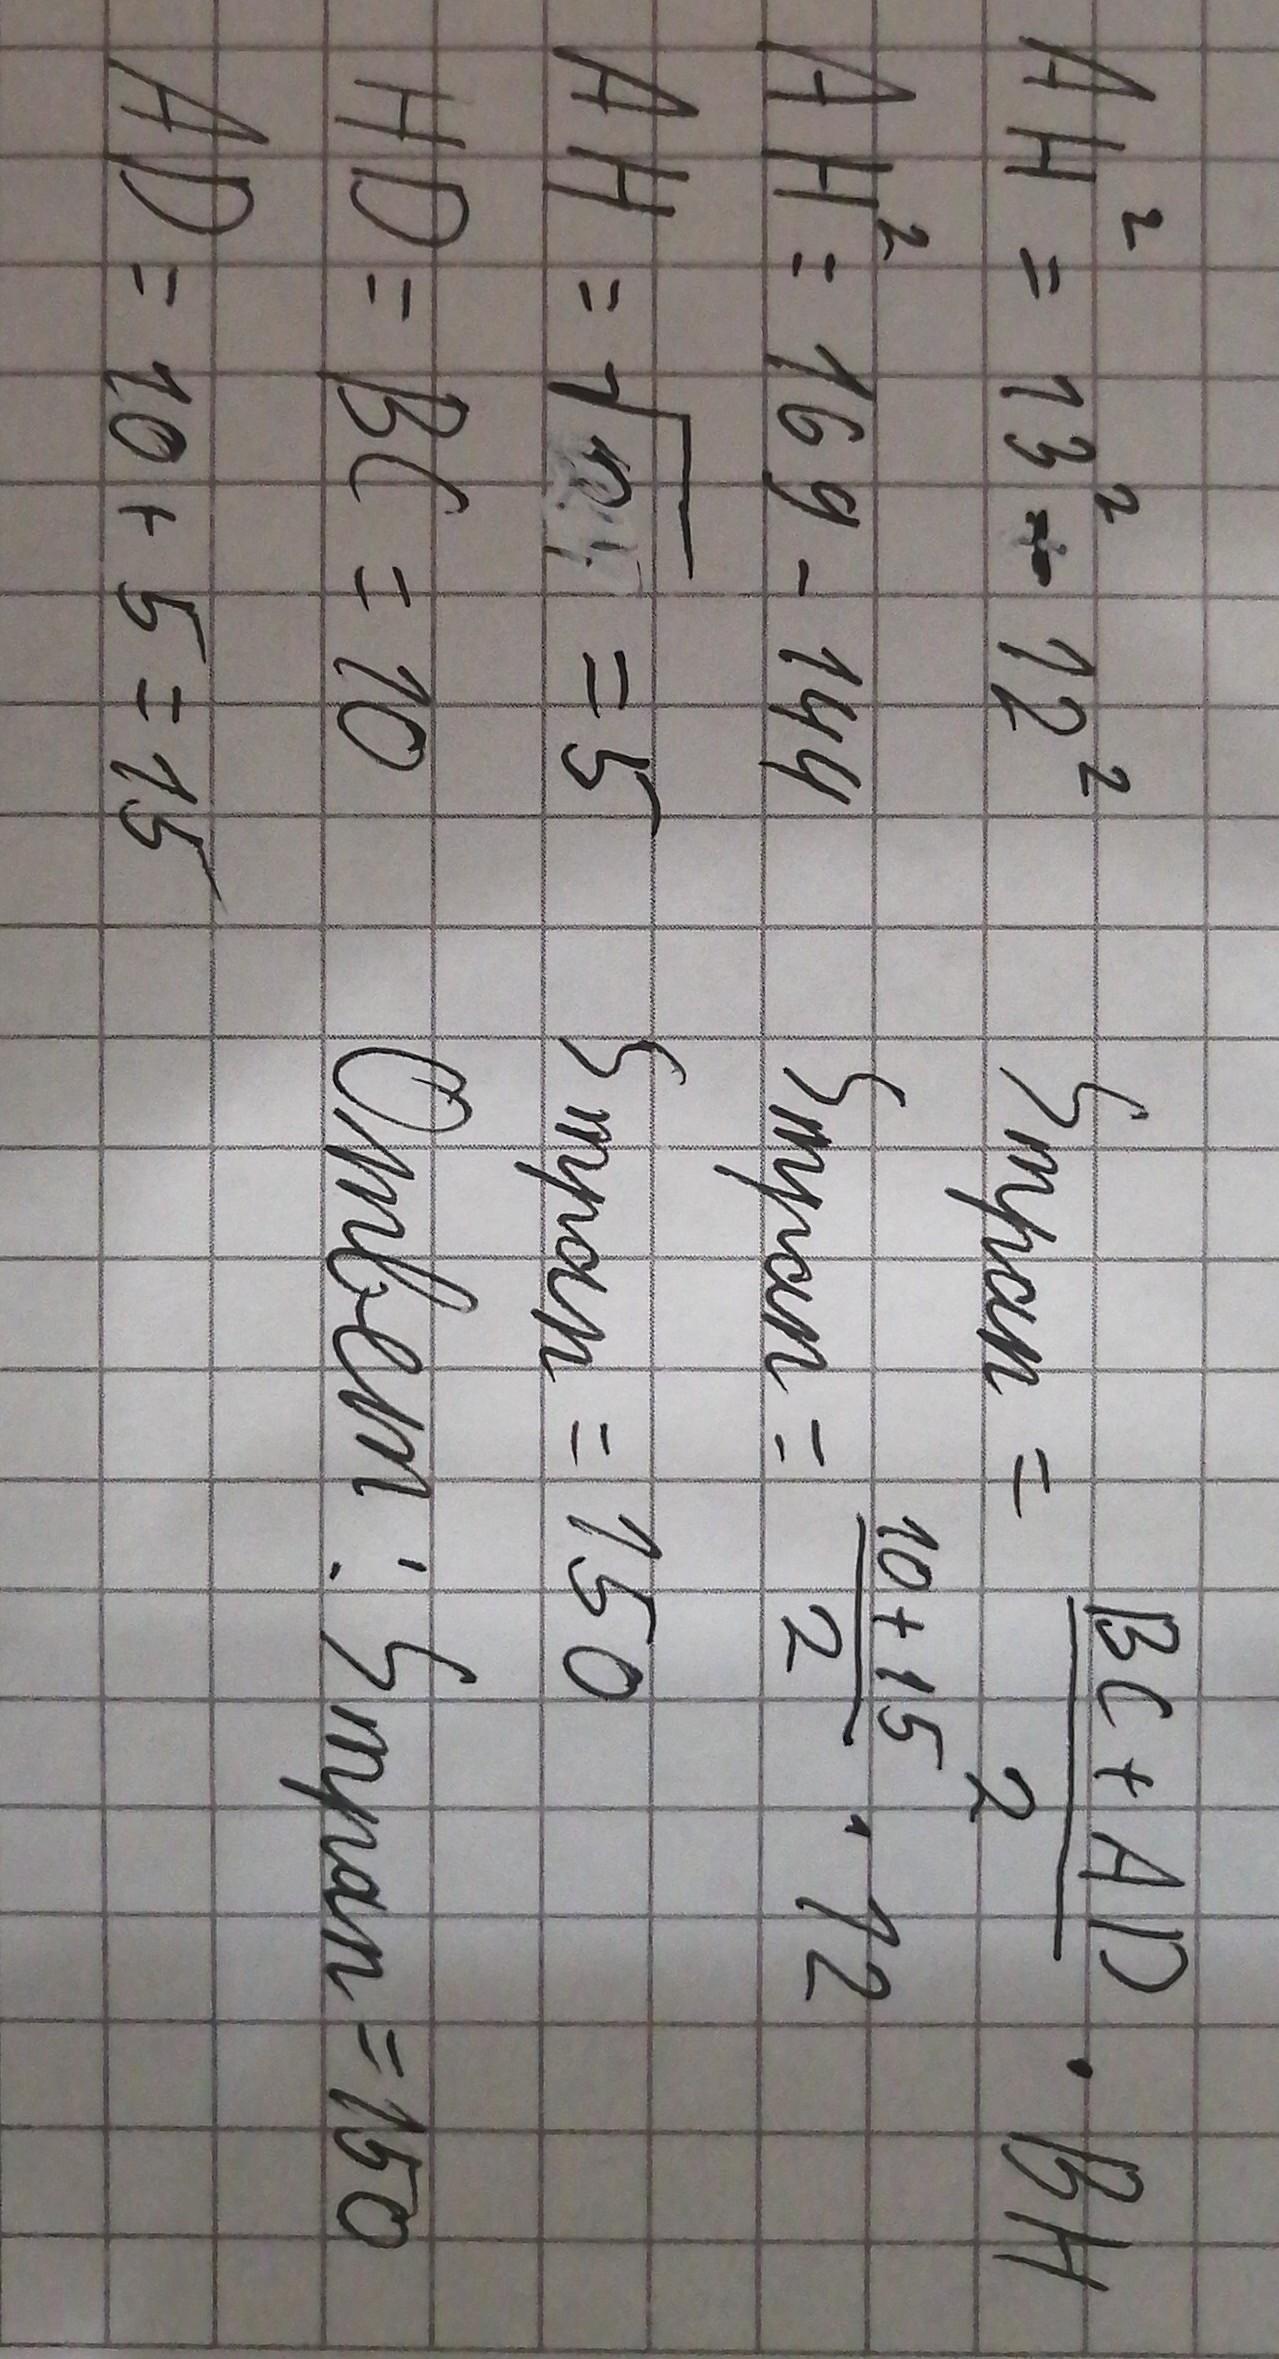 AH² = 13² - 12²
AH² = 169 - 144
AH = √ = 5
HD = BC = 10
AD = 10 + 5 = 15
Sтрап = (BC + AD)/2 · BH
Sтрап = (10 + 15)/2 · 12
Sтрап = 150
Ответ: Sтрап = 150